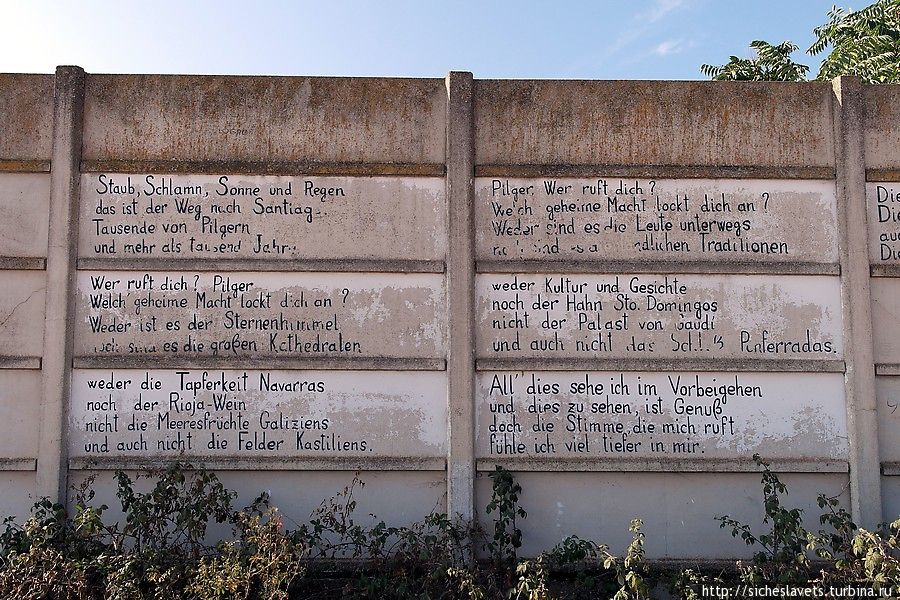 Staub, Schlamn, Sonne und Regen
das ist der Weg nach Santiag
Tausende von Pilgern
und mehr als tausend Jahr
Wer ruft dich? Pilger
Welch geheime Macht lockt dich an ?
Weder ist es der Sternenhimmel
noch sind es die großen Kathedralen
weder die Tapferkeit Navarras
noch der Rioja-Wein
nicht die Meeresfrüchte Galiziens
und auch nicht die Felder Kastiliens.
Pilger, Wer ruft dich ?
Welch geheime Macht lockt dich an ?
Weder sind es die Leute unterwegs
sind es Traditionen
weder Kultur und Gesichte
noch der Hahn Sto. Domingos
nicht der Palast von Gaudi
und auch nicht das Ponferradas.
All' dies sehe ich im Vorbeigehen
und dies zu sehen, ist Genuß
doch die Stimme, die mich ruft
fühle ich viel tiefer in mir.
Die
Die
au
Di
http://sicheslavets.turbina.ru